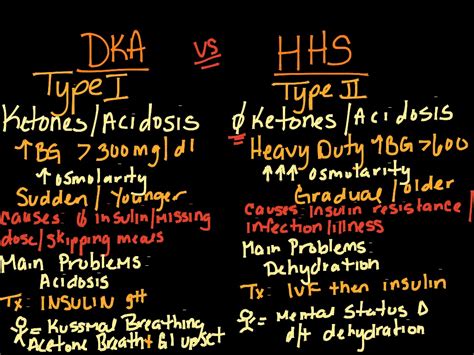 DKA vs HHS
Type I
Type II
Ketones/Acidosis
ϕ Ketones/Acidosis
↑BG >300mg/dl
Heavy Duty ↑BG >600
↑osmolarity
↑↑↑ osmolarity
Sudden / Younger
Gradual/older
Causes: insulin/missing
dose/skipping meals
Causes: Insulin resistance/
infection/illness
Main Problems:
Acidosis
Main Problems:
Dehydration
Tx: INSULIN gtt
Tx: IVF then insulin
= Kussmal Breathing
Acetone Breath + GI upset
= Mental Status Δ
d/t dehydration